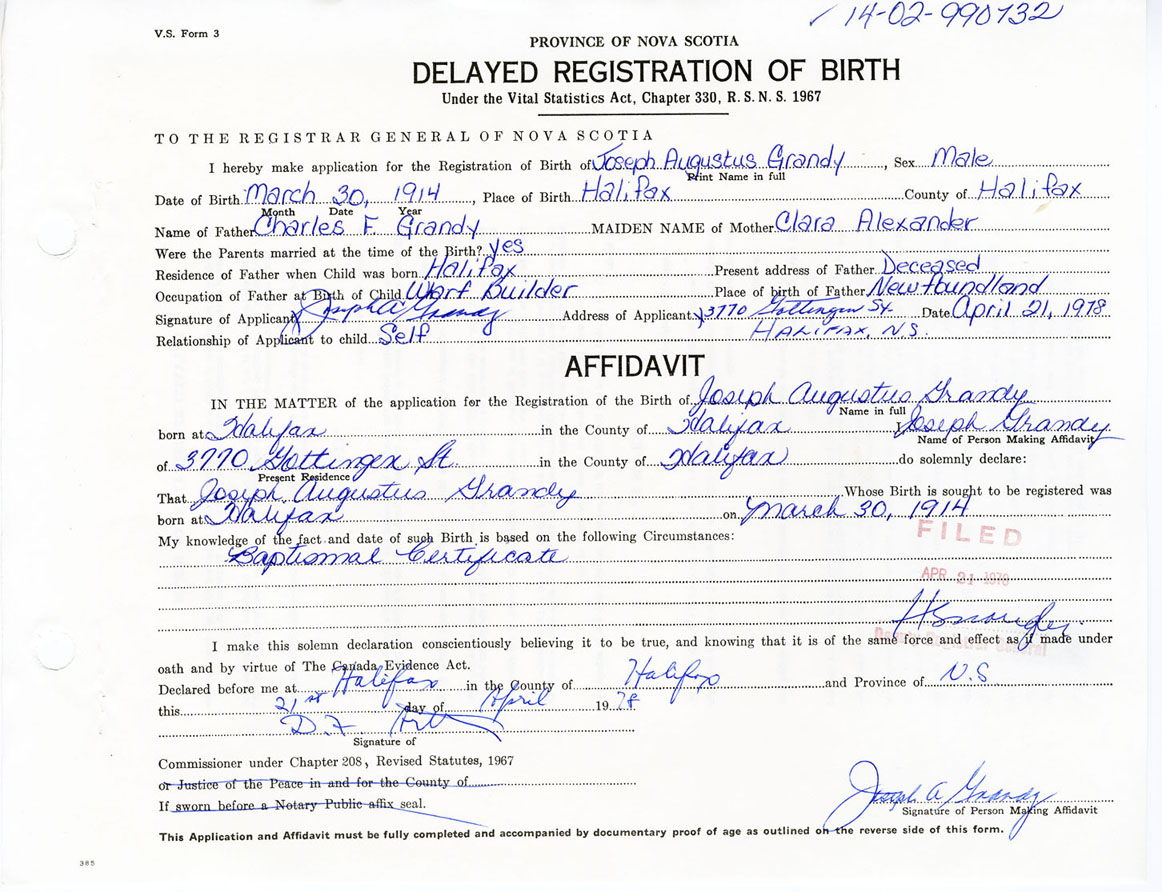 14-02-990732
V.S. Form 3
PROVINCE OF NOVA SCOTIA
DELAYED REGISTRATION OF BIRTH
Under the Vital Statistics Act, Chapter 330, R.S.N.S. 1967
TO THE REGISTRAR GENERAL OF NOVA SCOTIA
I hereby make application for the Registration of Birth of Joseph Augustus Grandy, Sex Male
Print Name in full
Date of Birth March 30, 1914, Place of Birth Halifax County of Halifax
Month Date Year
Name of Father Charles F Grandy MAIDEN NAME of Mother Clara Alexander
Were the Parents married at the time of the Birth? yes
Residence of Father when Child was born Halifax Present address of Father Deceased
Occupation of Father at Birth of Child Warf Builder Place of birth of Father Newfoundland
Signature of Applicant Joseph A Grandy Address of Applicant 3770 Gottingen St. Date April 21, 1978
Relationship of Applicant to child Self HALIFAX, N.S.
AFFIDAVIT
IN THE MATTER of the application for the Registration of the Birth of Joseph Augustus Grandy
Name in full
born at Halifax in the County of Halifax I Joseph Grandy
Name of Person Making Affidavit
of 3770 Gottingen St. in the County of Halifax do solemnly declare:
Present Residence
That Joseph Augustus Grandy Whose Birth is sought to be registered was
born at Halifax on March 30, 1914
My knowledge of the fact and date of such Birth is based on the following Circumstances:
Baptismal Certificate
FILED
APR 21 1978
Deputy Registrar General
I make this solemn declaration conscientiously believing it to be true, and knowing that it is of the same force and effect as if made under
oath and by virtue of The Canada Evidence Act.
Declared before me at Halifax in the County of Halifax and Province of N.S
this 21st day of April 1978
D.F.
Signature of
Commissioner under Chapter 208, Revised Statutes, 1967
or Justice of the Peace in and for the County of
If sworn before a Notary Public affix seal.
Joseph A Grandy
Signature of Person Making Affidavit
This Application and Affidavit must be fully completed and accompanied by documentary proof of age as outlined on the reverse side of this form.
385